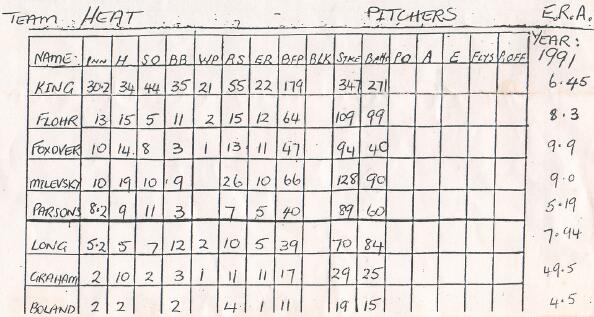 TEAM HEAT PITCHERS E.R.A.
NAME: INN H SO BB WP RS ER BFP BLK STKE BALLS PO A E FLYS P.OFF YEAR: 1991
KING 30.2 34 44 35 21 55 22 179 347 271 6.45
FLOHR 13 15 5 11 2 15 12 64 109 99 8.3
FOXOVER 10 14 8 3 1 13 11 47 94 40 9.9
MILEVSKY 10 19 10 9 26 10 66 128 90 9.0
PARSONS 8.2 9 11 3 7 5 40 89 60 5.19
LONG 5.2 5 7 12 2 10 5 39 70 84 7.94
GRAHAM 2 10 2 3 1 11 11 17 29 25 49.5
BOLAND 2 2 2 4 1 11 19 15 4.5